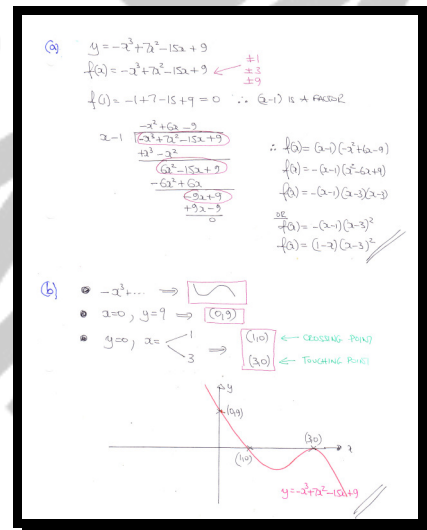 (a) y = -x³+7x²-15x+9
f(x) = -x³+7x²-15x+9 ← ±1
±3
±9
f(1) = -1+7-15+9 = 0 ∴ (x-1) IS A FACTOR
-x²+6x-9
x-1 -x³+7x²-15x+9
+x³-x²
6x²-15x+9
-6x²+6x
-9x+9
+9x-9
0
∴ f(x) = (x-1)(-x²+6x-9)
f(x) = -(x-1)(x²-6x+9)
f(x) = -(x-1)(x-3)(x-3)
OR
f(x) = -(x-1)(x-3)²
f(x) = (1-x)(x-3)²
(b) • -x³+... ⇒
• x=0, y=9 ⇒ (0,9)
• y=0, x= 1 3 ⇒ (1,0) ← CROSSING POINT
(3,0) ← TOUCHING POINT
y
(0,9)
(3,0)
x
(1,0)
y=-x³+7x²-15x+9